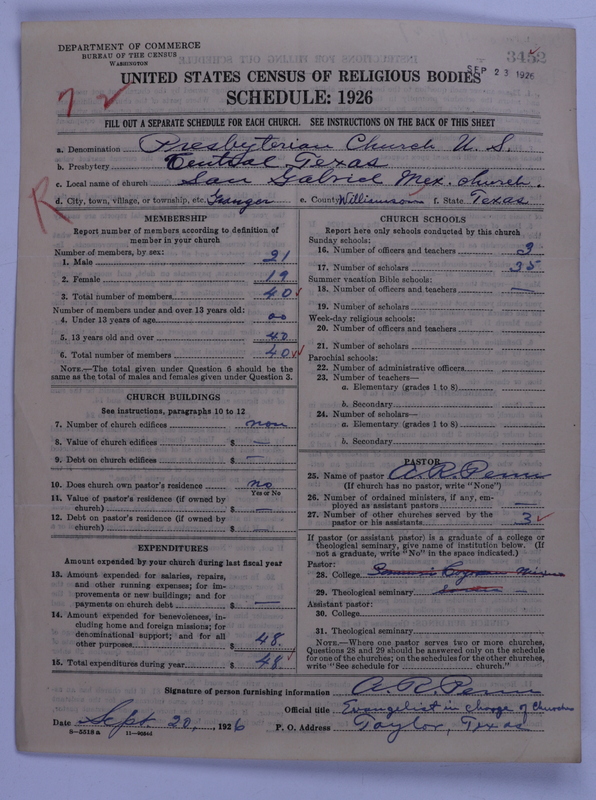 DEPARTMENT OF COMMERCE
BUREAU OF THE CENSUS
WASHINGTON
3452
SEP 23 1926
UNITED STATES CENSUS OF RELIGIOUS BODIES
SCHEDULE: 1926
72
FILL OUT A SEPARATE SCHEDULE FOR EACH CHURCH. SEE INSTRUCTIONS ON THE BACK OF THIS SHEET
a. Denomination Presbyterian Church U. S.
b. Presbytery Central Texas
c. Local name of church San Gabriel Mex. church.
R
d. City, town, village, or township, etc. Granger e. County Williamson f. State Texas
MEMBERSHIP
Report number of members according to definition of
member in your church
Number of members, by sex:
1. Male 21
2. Female 19
3. Total number of members 40
Number of members under and over 13 years old:
4. Under 13 years of age oo
5. 13 years old and over 40
6. Total number of members 40
NOTE.—The total given under Question 6 should be the
same as the total of males and females given under Question 3.
CHURCH BUILDINGS
See instructions, paragraphs 10 to 12
7. Number of church edifices non
8. Value of church edifices $ —
9. Debt on church edifices $ —
10. Does church own pastor's residence no
Yes or No
11. Value of pastor's residence (if owned by
church) $ —
12. Debt on pastor's residence (if owned by
church) $ —
EXPENDITURES
Amount expended by your church during last fiscal year
13. Amount expended for salaries, repairs,
and other running expenses; for im-
provements or new buildings; and for
payments on church debt $ —
14. Amount expended for benevolences, in-
cluding home and foreign missions; for
denominational support; and for all
other purposes $ 48
15. Total expenditures during year $ 48
CHURCH SCHOOLS
Report here only schools conducted by this church
Sunday schools:
16. Number of officers and teachers 3
17. Number of scholars 35
Summer vacation Bible schools:
18. Number of officers and teachers —
19. Number of scholars
Week-day religious schools:
20. Number of officers and teachers
21. Number of scholars
Parochial schools:
22. Number of administrative officers
23. Number of teachers—
a. Elementary (grades 1 to 8)
b. Secondary
24. Number of scholars—
a. Elementary (grades 1 to 8)
b. Secondary
PASTOR
25. Name of pastor A. R. Penn
(If church has no pastor, write "None")
26. Number of ordained ministers, if any, em-
ployed as assistant pastors —
27. Number of other churches served by the
pastor or his assistants 3
If pastor (or assistant pastor) is a graduate of a college or
theological seminary, give name of institution below. (If
not a graduate, write "No" in the space indicated.)
Pastor:
28. College
29. Theological seminary —
Assistant pastor:
30. College
31. Theological seminary
NOTE.—Where one pastor serves two or more churches,
Questions 28 and 29 should be answered only on the schedule
for one of the churches; on the schedules for the other churches,
write "See schedule for church."
Signature of person furnishing information A. R. Penn
Official title Evangelist in charge of Churches
Date Sept 20, 1926 P. O. Address Taylor, Texas
8—5518a